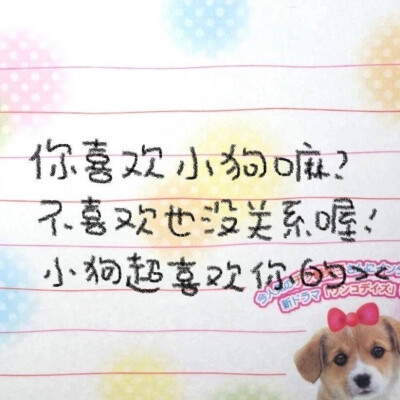 你喜欢小狗嘛？
不喜欢也没关系喔！
小狗超喜欢你的><
新ドラマ「ワンコデイズ」